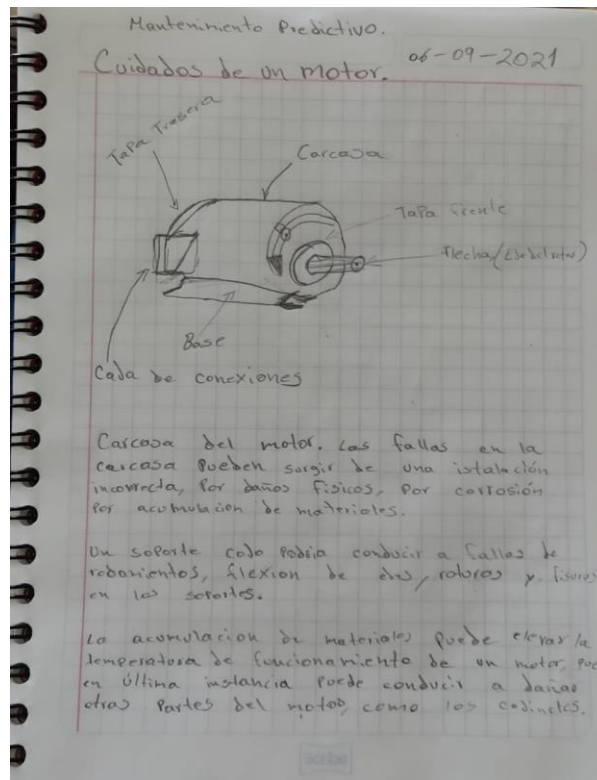 Mantenimiento Predictivo.
06-09-2021
Cuidados de un motor.
Tapa Trasera
Carcasa
Tapa frente
flecha/(Eje del rotor)
Base
Caja de conexiones
Carcasa del motor. Las fallas en la
carcasa pueden surgir de una istalación
incorrecta, Por daños físicos, Por corrosión
Por acumulacion de materiales.
Un soporte cojo Podria conducir a fallas de
rodamientos, flexion de ejes, roturas y fisuras
en los soportes.
La acumulacion de materiales puede elevar la
temperatura de funcionamiento de un motor,
en última instancia puede conducir a dañar
otras Partes del motor, como los cojinetes.